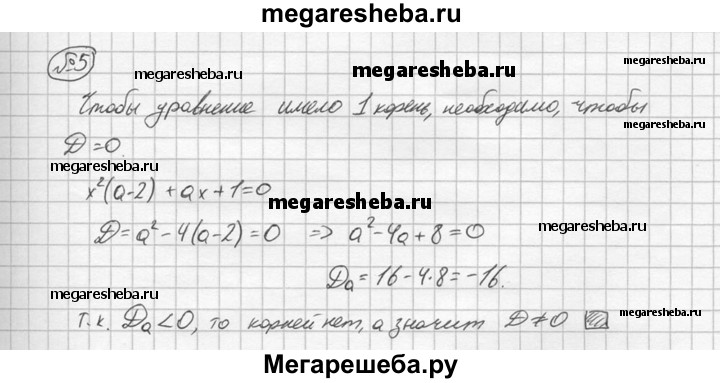 megaresheba.ru
№5
megaresheba.ru megaresheba.ru megaresheba.ru
Чтобы уравнение имело 1 корень, необходимо, чтобы
megaresheba.ru
D=0.
megaresheba.ru
x²(a-2)+ax+1=0
megaresheba.ru
D=a²-4(a-2)=0 => a²-4a+8=0
megaresheba.ru
Dₐ=16-4·8=-16.
megaresheba.ru megaresheba.ru megaresheba.ru
т.к. Dₐ<0, то корней нет, а значит D≠0
Мегарешеба.ру